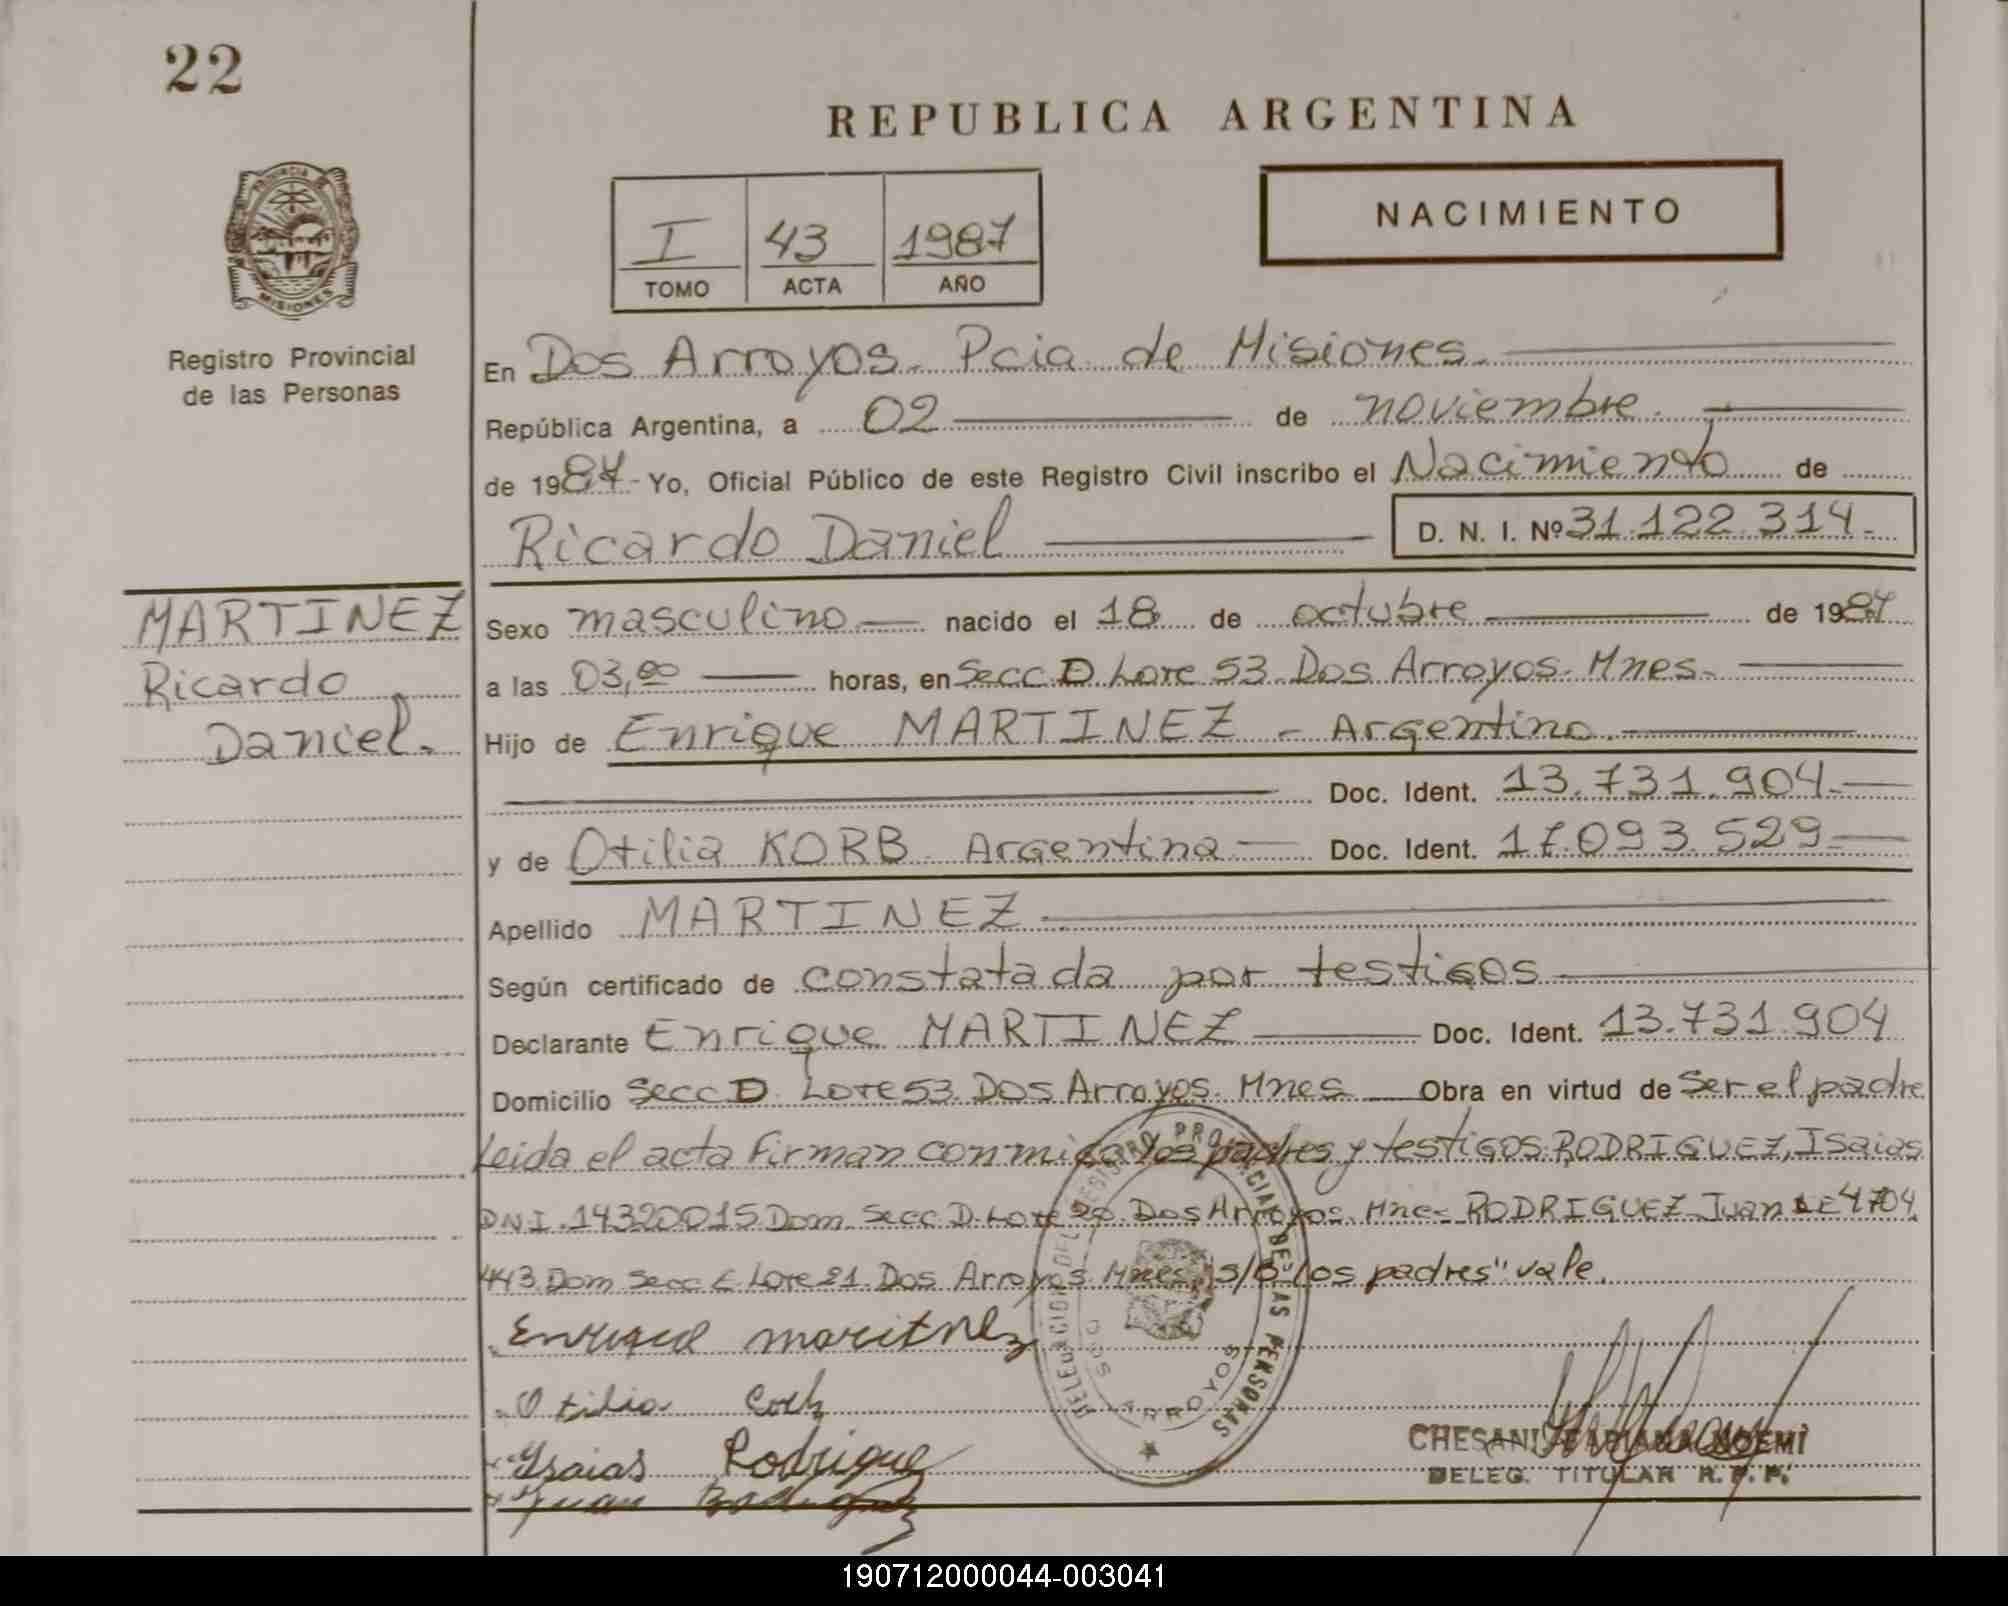 22
REPUBLICA ARGENTINA
PROVINCIA DE
MISIONES
I 43 1987
TOMO ACTA AÑO
NACIMIENTO
Registro Provincial
de las Personas
En Dos Arroyos. Pcia de Misiones.
República Argentina, a 02 de noviembre.
de 1987.- Yo, Oficial Público de este Registro Civil inscribo el Nacimiento de
Ricardo Daniel D. N. I. Nº 31.122.314.-
MARTINEZ
Ricardo
Daniel.
Sexo masculino nacido el 18 de octubre de 1987
a las 03,00 horas, en Secc D. Lote 53. Dos Arroyos. Mnes.
Hijo de Enrique MARTINEZ - Argentino.
Doc. Ident. 13.731.904.
y de Otilia KORB. Argentina Doc. Ident. 17.093.529
Apellido MARTINEZ
Según certificado de constatada por testigos
Declarante Enrique MARTINEZ Doc. Ident. 13.731.904
Domicilio Secc D. Lote 53. Dos Arroyos. Mnes Obra en virtud de Ser el padre
Leida el acta Firman conmigo los padres y testigos RODRIGUEZ, Isaias
DNI.14320015 Dom. Secc D. Lote Dos Arroyos. Mnes RODRIGUEZ Juan LE 4704
443. Dom Secc Lote 21. Dos Arroyos Mnes, s/b "los padres" vale.
DELEGACION DEL REGISTRO PROVINCIAL DE LAS PERSONAS
DOS ARROYOS
Enrique maritnez
Otilia
Isaias Rodrigue
Juan Rodriguez
CHESANI FABIANA NOEMI
DELEG. TITULAR R. P. P.
190712000044-003041